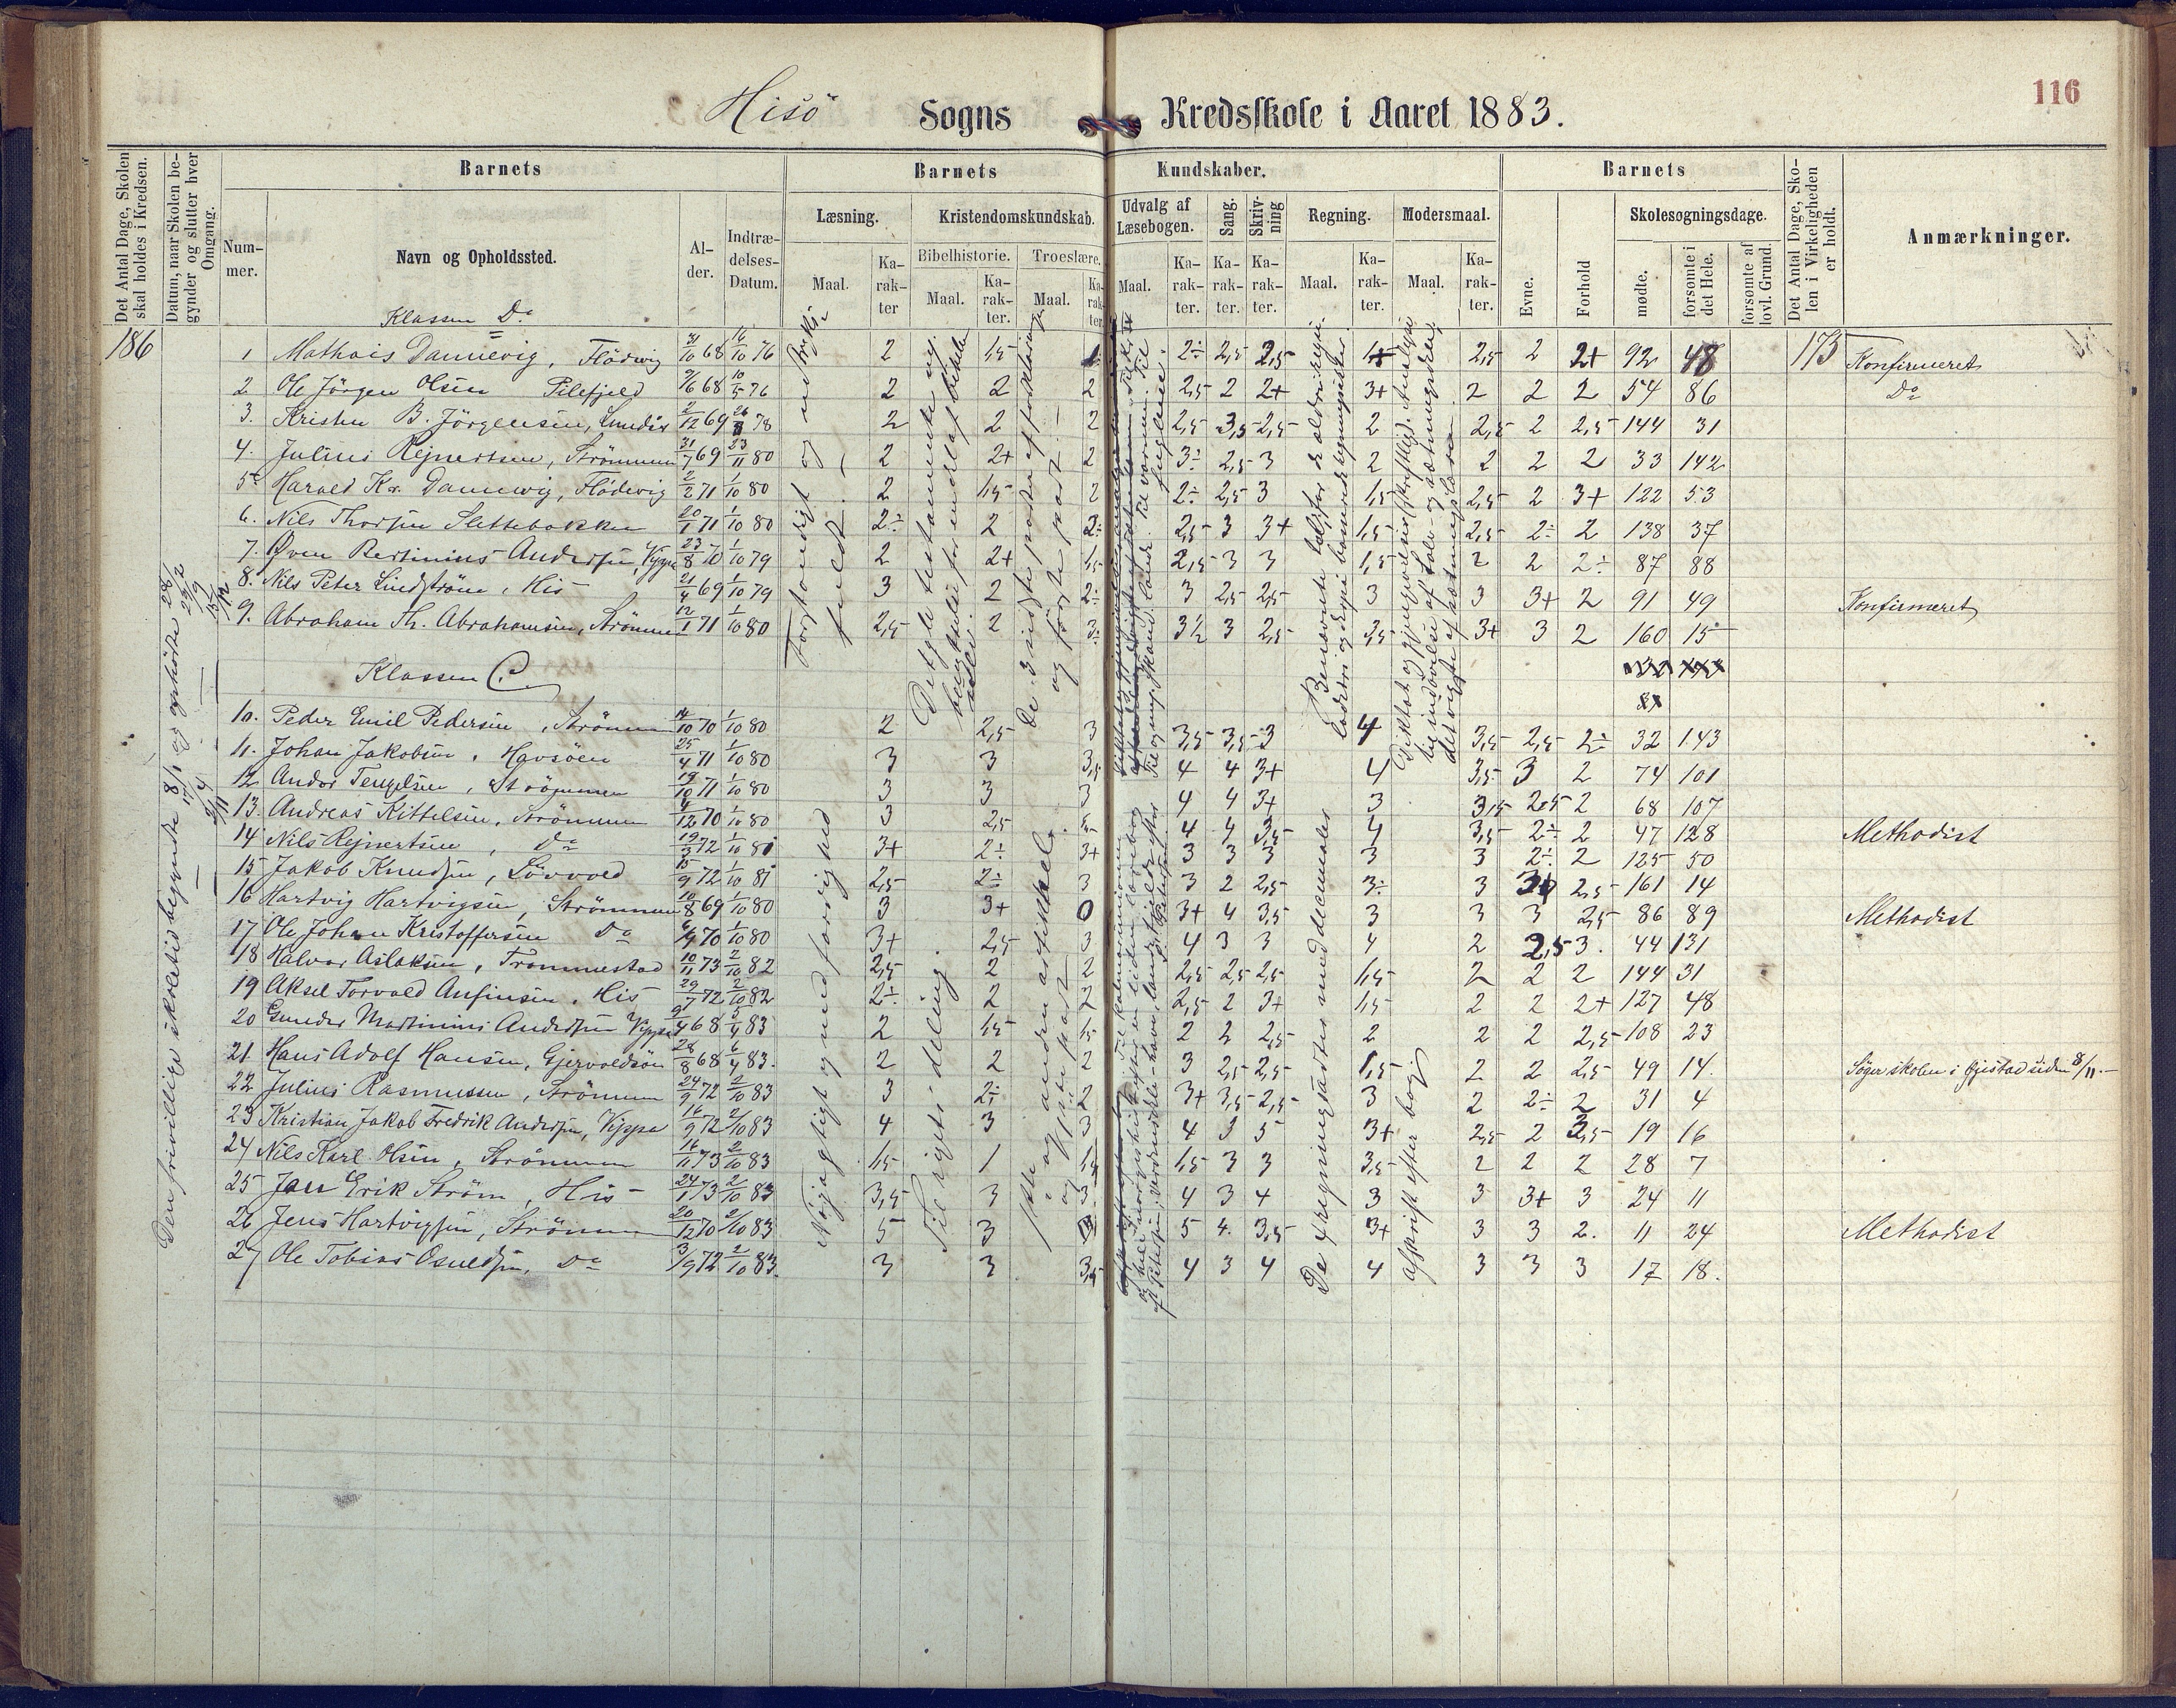 116
Hisö Sogns Kredsskole i Aaret 1883.
Det Antal Dage, Skolen skal holdes i Kredsen.
Datum, naar Skolen begynder og slutter hver Omgang.
Barnets
Nummer.
Navn og Opholdssted.
Alder.
Indtrædelses-Datum.
Barnets Kundskaber.
Læsning.
Maal.
Karakter
Kristendomskundskab.
Bibelhistorie.
Maal.
Karakter.
Troeslære.
Maal.
Karakter
Udvalg af Læsebogen.
Maal.
Karakter.
Sang.
Karakter.
Skrivning
Karakter.
Regning.
Maal.
Karakter.
Modersmaal.
Maal.
Karakter.
Barnets
Evne.
Forhold
Skolesøgningsdage.
mødte.
forsømte i det Hele.
forsømte af lovl. Grund.
Det Antal Dage, Skolen i Virkeligheden er holdt.
Anmærkninger.
Klassen D.
186
1 Mathais Dannevig, Flödevig 31/10 68 16/10 76 2 1,5 1 2÷ 2,5 2,5 2,5 2 2+ 92 48 173 Konfirmeret
2 Ole Jörgen Olsen Pilefjeld 9/6 68 10/5 76 2 2 2 2,5 2 2+ 3+ 2 2 2 54 86 Do
3. Kristen B. Jörgensen, 2/12 69 78 2 2 2 2,5 3,5 2,5 2 2,5 2 2,5 144 31
4. Julius Rejnertsen, Strömmen 31/7 69 23/11 80 2 2+ 2 3÷ 2,5 3 2 2 2 2 33 142
5 Harald Kr. Dannevig, Flödevig 2/2 71 1/10 80 2 1,5 2 2÷ 2,5 3 1,5 2,5 2 3+ 122 53
6. Nils Thorsen Slettebakken 20/1 71 1/10 80 2÷ 2 2÷ 2,5 3 3+ 1,5 2,5 2÷ 2 138 37
7. Øven Bertinius Andersen, Vippa 23/8 70 1/10 79 2 2+ 1,5 2,5 3 3 1,5 2 2 2÷ 87 88
8. Nils Peter Lindström, His 21/4 69 1/10 79 3 2 2÷ 3 2,5 2,5 3 3 3+ 2 91 49 Konfirmeret
9. Abraham Th. Abrahamsen, Strömmen 12/1 71 1/10 80 2,5 2 3÷ 3½ 3 2,5 3,5 3+ 3 2 160 15
Klassen C.
10. Peder Emil Pedersen, Strömmen 14/10 70 1/10 80 2 2,5 3 3,5 3,5 3 4 3,5 2,5 2÷ 32 143
11. Johan Jakobsen, Havsöen 25/4 71 1/10 80 3 3 3,5 4 4 3+ 4 3,5 3 2 74 101
12 Andor Tengelsen, Strömmen 19/10 71 1/10 80 3 3 3 4 4 3+ 3 3,5 2,5 2 68 107
13. Andreas Kittelsen, Strömmen 4/12 70 1/10 80 3 2,5 4 4 3,5 4 3,5 2÷ 2 47 128 Methodist
14 Nils Rejnertsen, Do 19/3 72 1/10 81 3+ 2÷ 3+ 3 3 3 3 3 2÷ 2 125 50
15 Jakob Knudsen, Lövvold 15/9 72 1/10 81 2,5 2÷ 3 3 2 2,5 3÷ 3 2,5 161 14
16 Hartvig Hartvigsen, Strömmen 10/8 69 1/10 80 3 3+ 0 3+ 4 3,5 3 3 3 2,5 86 89 Methodist
17 Ole Johan Kristoffersen Do 70 1/10 80 3+ 2,5 3 4 3 3 4 2 2,5 3. 44 131
18 Halvor Aslaksen, Trommestad 10/11 73 2/10 82 2,5 2 2 2,5 2,5 2,5 1,5 2 2 2 144 31
19 Aksel Torvald Anfinsen, His 29/7 72 2/10 82 2÷ 2 2 2,5 2 3+ 1,5 2 2 2+ 127 48
20 Gunder Martinius Andersen Vippa 68 5/4 83 2 1,5 1,5 2 2 2,5 2 2 2 2,5 108 23
21 Hans Adolf Hansen, Gjervoldsöen 28/8 68 6/4 83. 2 2 2 3 2,5 2,5 1,5 2 2 2,5 49 14. Söger skolen i Gjestad siden 8/11.
22 Julius Rasmussen, Strömmen 24/9 72 2/10 83 3 2÷ 2 3+ 3,5 2,5 3 2 2÷ 2 31 4
23 Kristian Jakob Fredrik Andersen, Vippa 16/9 72 2/10 83 4 3 3 4 3 5 3+ 2,5 2 2,5 19 16
24 Nils Karl Olsen, Strömmen 16/11 73 2/10 83 1,5 1 1,5 1,5 3 3 3,5 2 2 2 28 7
25 Jan Erik Ström, His 24/1 73 2/10 83 3,5 3 3 4 3 4 3 3 3+ 3 24 11
26 Jens Hartvigsen, Strömmen 20/12 70 2/10 83 5 3 5 4. 3,5 3+ 3 3 2. 11 24 Methodist
27 Ole Tobias Osuldsen, Do 3/9 72 2/10 83. 3 3 3,5 4 3 4 4 3 3 3 17 18.
Den frivillige skoletid begyndte 8/1 og ophörte
Forstandigt og
Nöjagtigt og med færdighed
Til rigets deling.
De 3 sidste parter af forklaringen og förste part.
De 4 regningsarter med decimaler
Afskrift efter bog